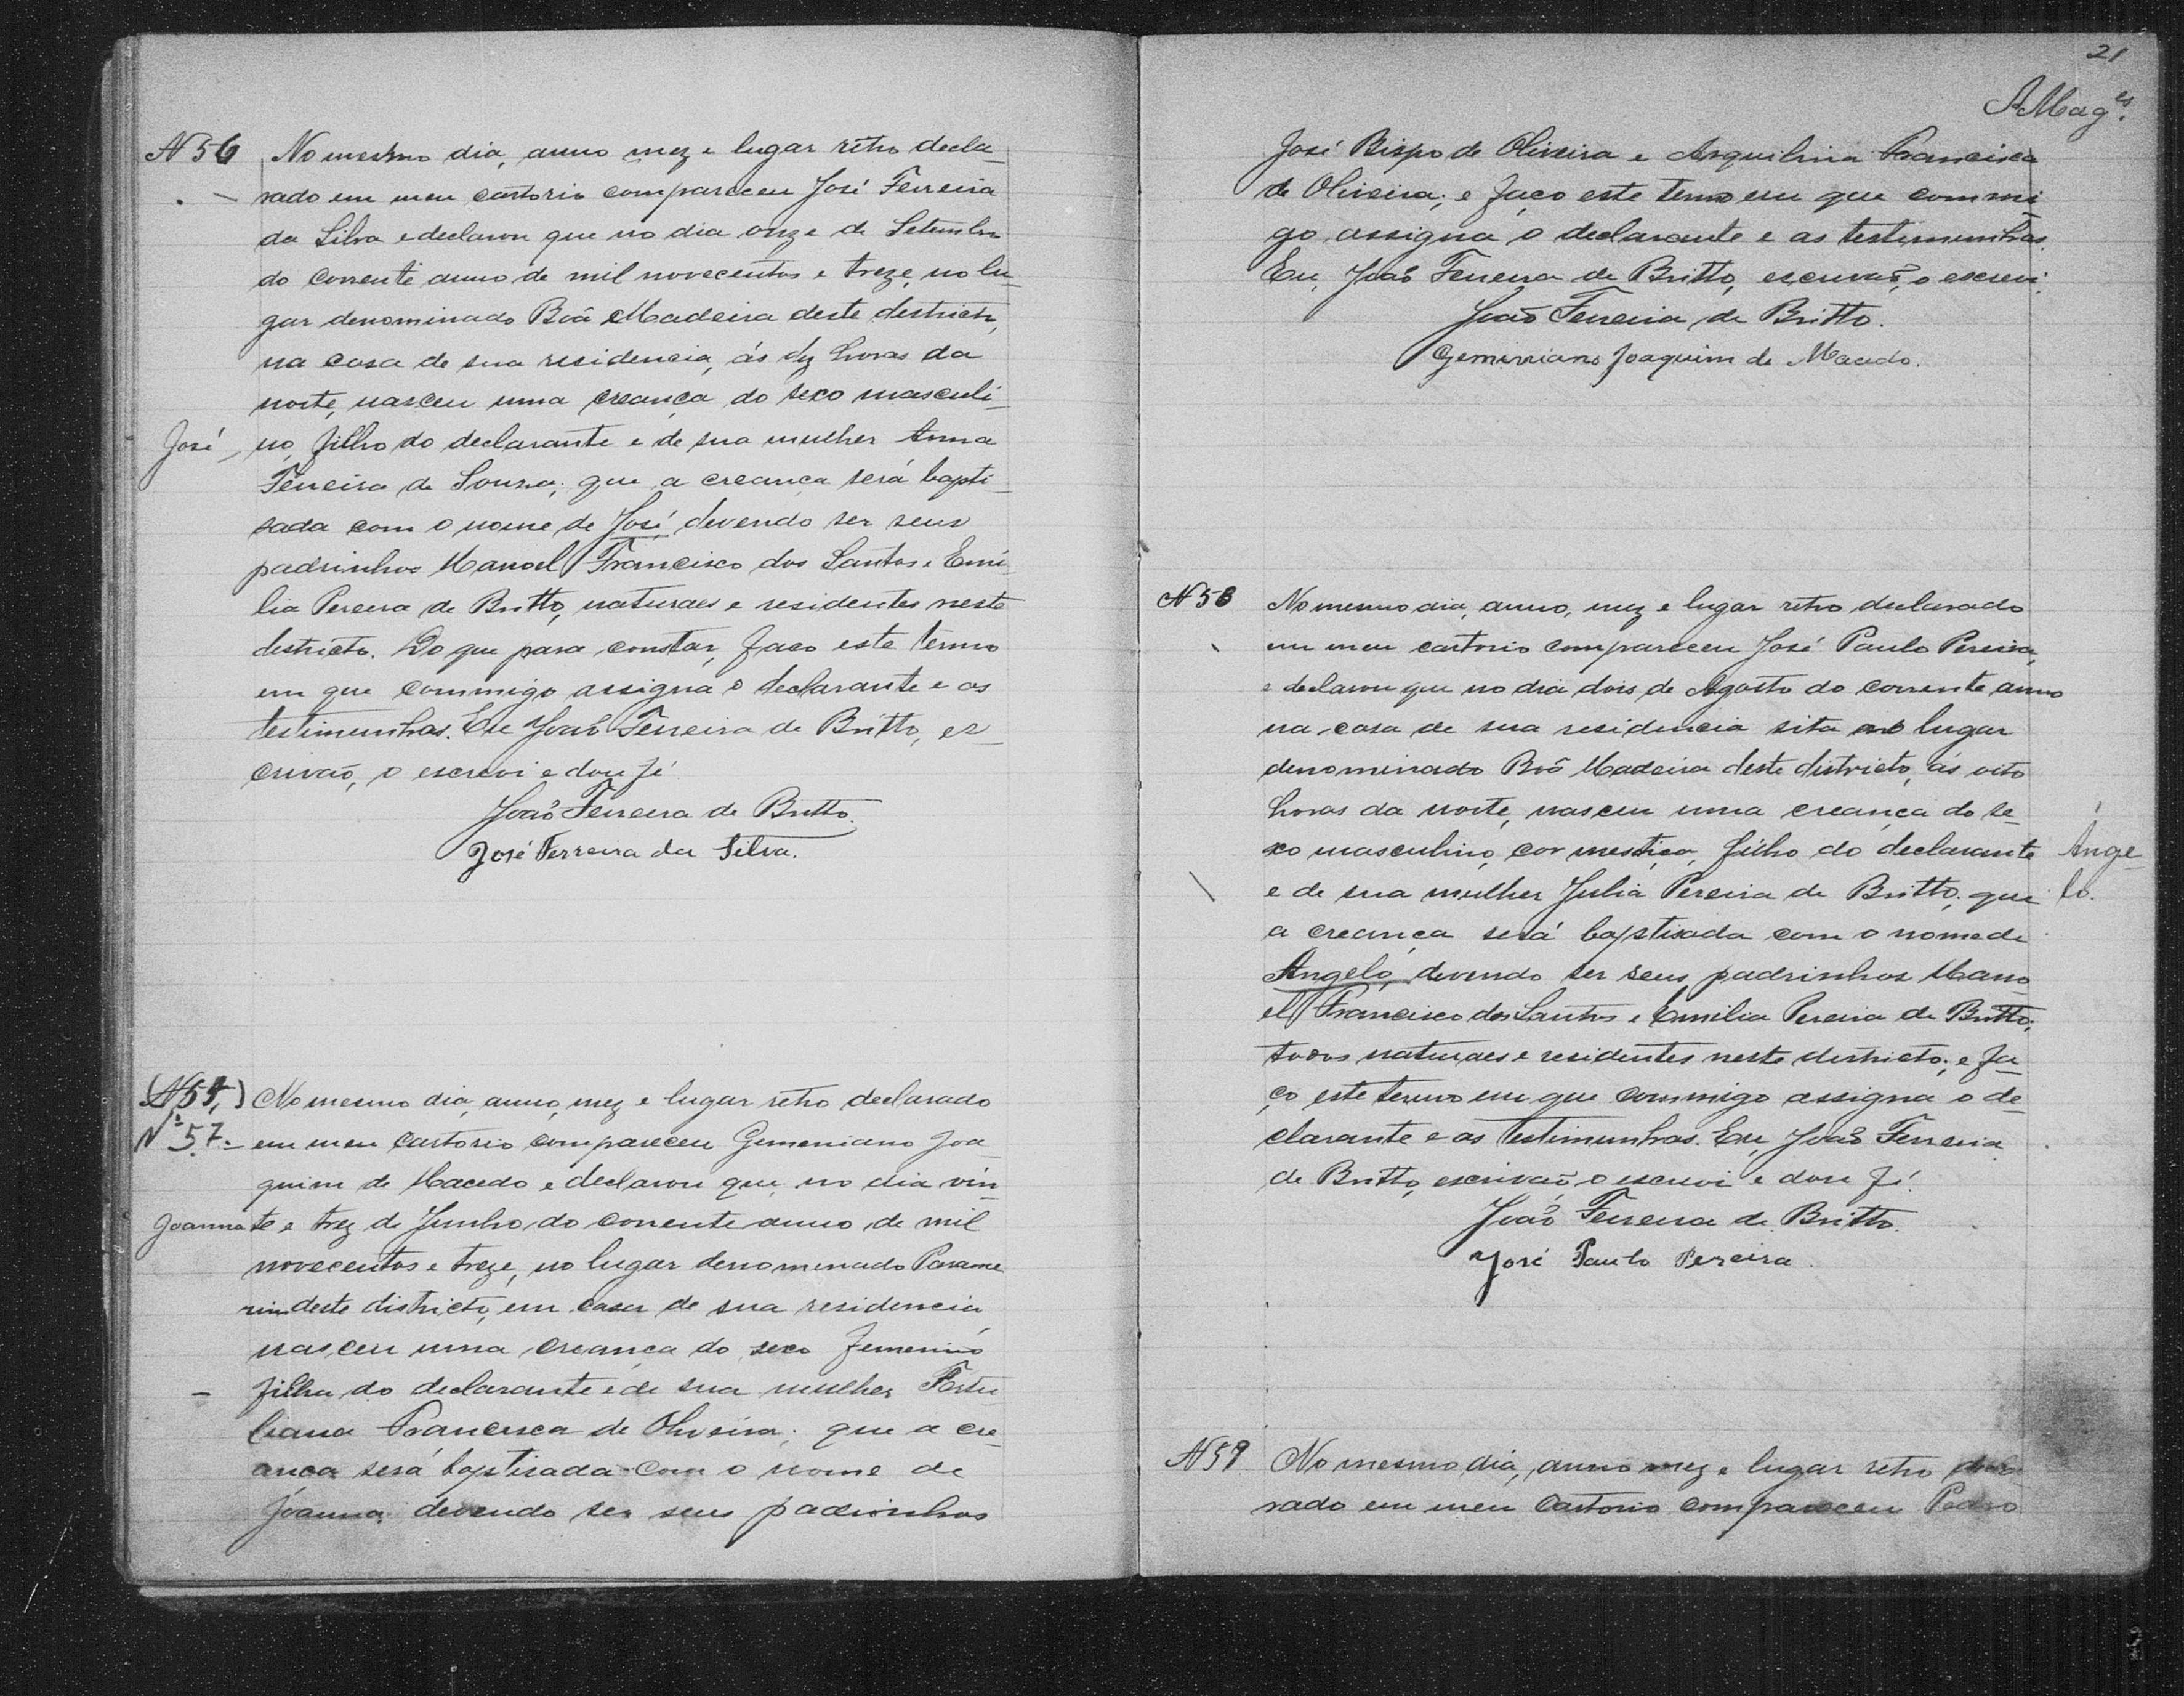 N 56 No mesmo dia, anno mez e lugar retro decla-
rado em meu cartorio compareceu José Ferreira
da Silva e declarou que no dia onze de Setembro
do corrente anno de mil novecentos e treze, no lu-
gar denominado Boâ Madeira deste destricto,
na casa de sua residencia, ás dez horas da
noite, nasceu uma creança do sexo masculi-
José no, filho do declarante e de sua mulher Anna
Ferreira de Souza; que a creança será bapti-
sada com o nome de José, devendo ser seus
padrinhos Manoel Francisco dos Santos e Emi-
lia Pereira de Britto, naturaes e residentes neste
destricto. Do que para constar, faço este termo
em que commigo assigna o declarante e as
testimunhas. Eu João Ferreira de Britto, es-
crivão, o escrevi e dou fé
João Ferreira de Britto.
José Ferreira da Silva.
(N 57,) No mesmo dia, anno, mez e lugar retro declarado
Nº 57.- em meu cartorio compareceu Gimeniano Joa-
quim de Macedo e declarou que, no dia vin-
Joanna te e trez de Junho do corrente anno, de mil
novecentos e treze, no lugar denominado Parame
rim deste districto, em casa de sua residencia,
nasceu uma creança do sexo femenino
filha do declarante e de sua mulher
Francisca de Oliveira; que a cre-
ança será baptisada com o nome de
Joanna, devendo ser seus padrinhos
21
AMag.es
José Bispo de Oliveira e Arquilina Francisca
de Oliveira; e faço este termo em que commi
go assigna o declarante e as testemunhas.
Eu, João Ferreira de Britto, escrivão, o escrevi.
João Ferreira de Britto.
Geminiano Joaquim de Macedo.
N 58 No mesmo dia, anno, mez e lugar retro declarado
em meu cartorio compareceu José Paulo Pereira,
e declarou que no dia dois de Agosto do corrente anno
na casa de sua residencia sita no lugar
denominado Boâ Madeira deste districto, ás oito
horas da noite, nasceu uma creança do se-
xo masculino, cor mestiça, filho do declarante Ange-
e de sua mulher Julia Pereira de Britto; que lo.
a creança será baptisada com o nome de
Angelo, devendo ser seus padrinhos Mano
el Francisco dos Santos e Emilia Pereira de Britto;
todos naturaes e residentes neste destricto; e fa-
ço este termo em que commigo assigna o de-
clarante e as testimunhas. Eu, João Ferreira
de Britto, escrivão o escrevi e dou fé.
João Ferreira de Britto.
José Paulo Pereira.
N 59 No mesmo dia, anno mez e lugar retro
rado em meu Cartorio compareceu Pedro